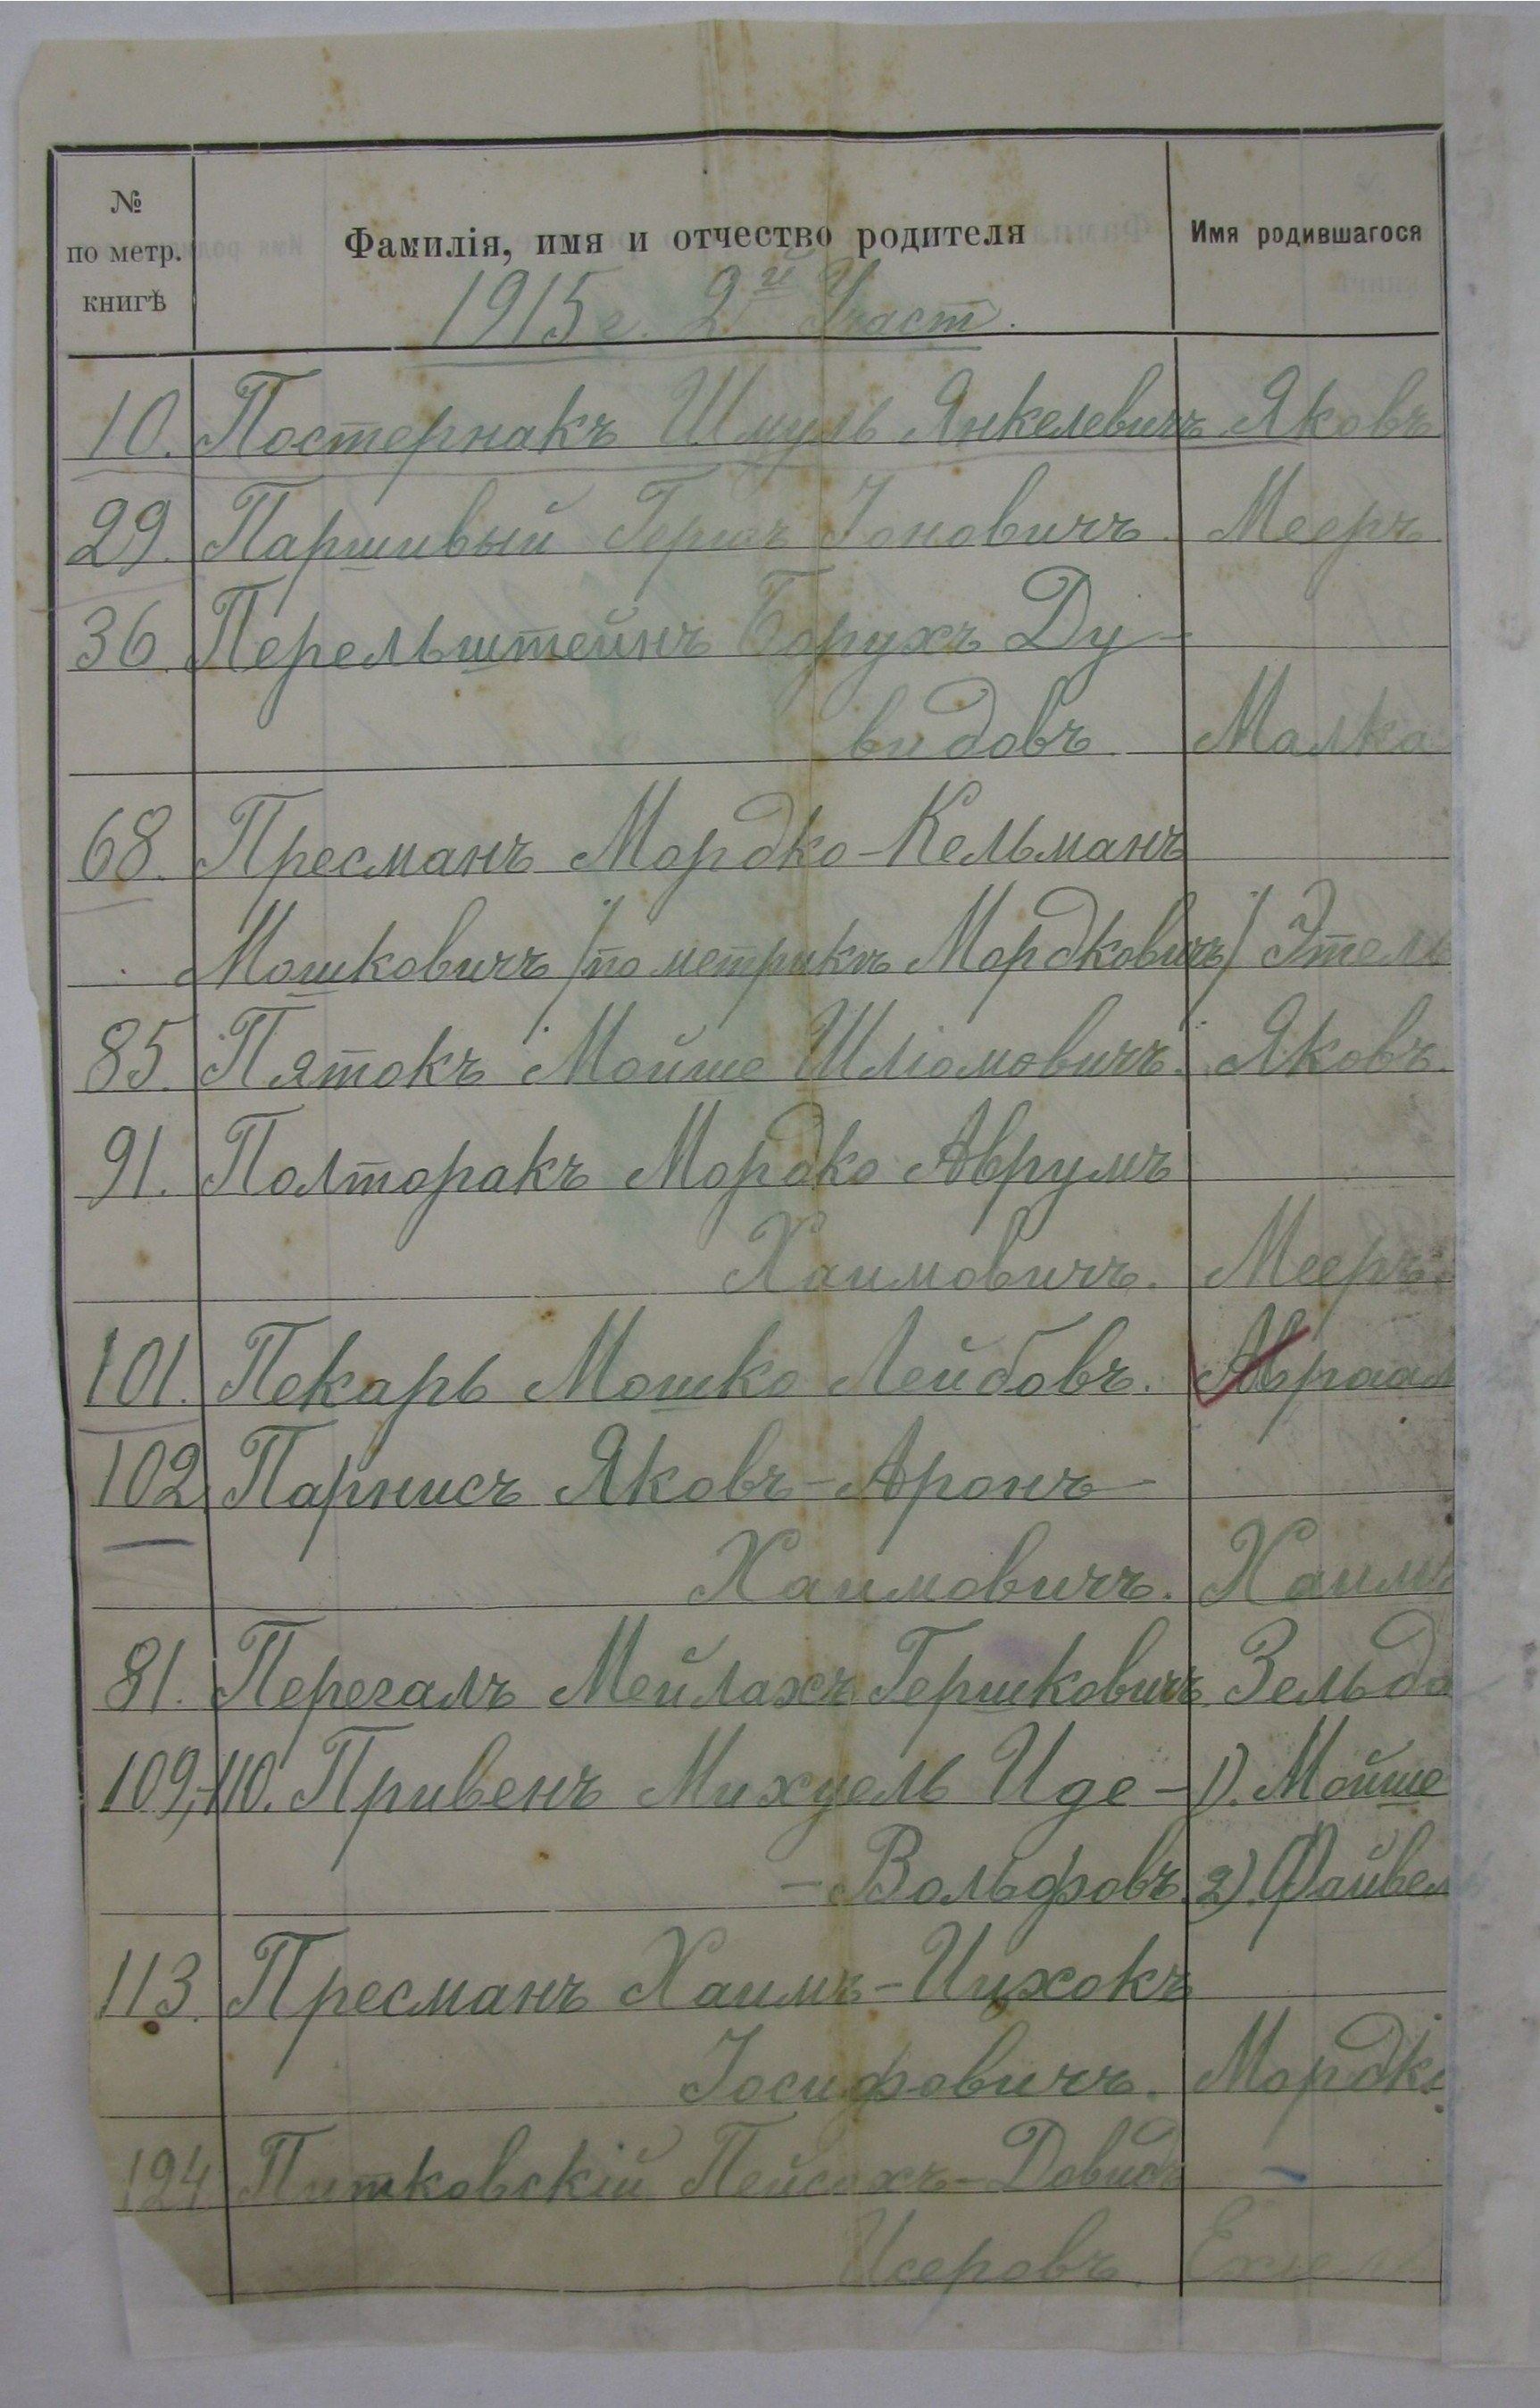 № по метр. книгѣ Фамилія, имя и отчество родителя Имя родившагося
1915 г. 2й Участ.
10. Постернакъ Шмуль Янкелевичъ Яковъ
29. Паршивый Гершъ Іоновичъ. Мееръ
36. Перельштейнъ Борухъ Ду-
видовъ Малка
68. Пресманъ Мордко-Кельманъ
Мошковичъ /по метрикѣ Мордковичъ/ Этель
85. Пятокъ Мойше Шліомовичъ. Яковъ.
91. Полторакъ Мордко Аврумъ
Хаимовичъ. Мееръ.
101. Пекарь Мошко Лейбовъ. Авраам
102. Парнисъ Яковъ-Аронъ-
Хаимовичъ. Хаимъ
81. Перегалъ Мейлахъ Гершковичъ Зельда
109,-110. Привенъ Михуель Иде- 1). Мойше
-Вольфовъ. 2). Файвел
113. Пресманъ Хаимъ-Ицхокъ
Іосифовичъ. Мордко
124 Питковскій Пейсахъ-Довидъ
Исеровъ. Ехиель